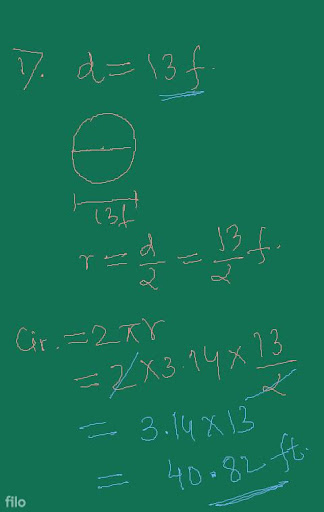 1). d = 13 f.
13f
r = d/2 = 13/2 f.
Cir. = 2πr
= 2 × 3.14 × 13/2
= 3.14 × 13
= 40.82 ft.
filo